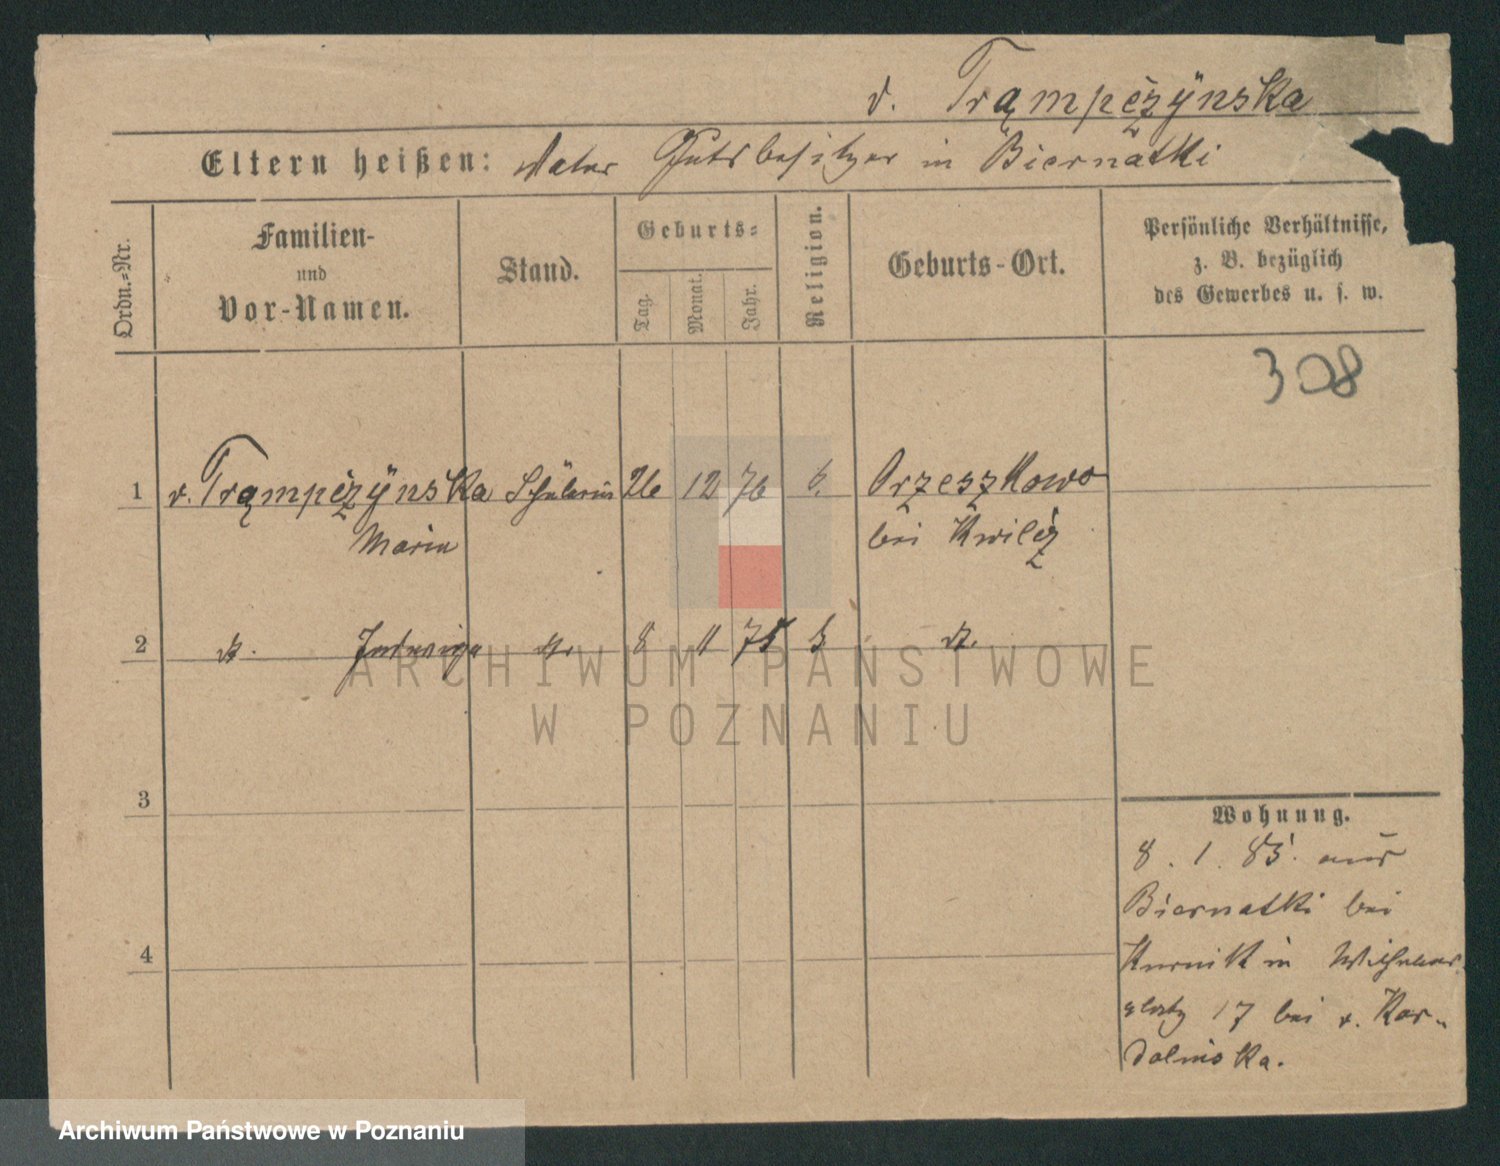 v. Trąmpczÿnska
Eltern heißen: Vater Gutsbesitzer in Biernatki
Ordn.-Nr.
Familien-
und
Vor-Namen.
Stand.
Geburts-
Tag.
Monat.
Jahr.
Religion.
Geburts-Ort.
Persönliche Verhältnisse,
z. B. bezüglich
des Gewerbes u. s. w.
308
1 v. Trąmpczÿnska Schülerin 26 12 76 Orzeszkowo
Maria bei Kwilcz
2 dt. Jadwiga dt. 8 11 75 dt.
3
4
Wohnung.
8. 1. 85. aus
Biernatki bei
Kurnik in Wilhelms
platz 17 bei v. Kar-
dolinska.
ARCHIWUM PAŃSTWOWE
W POZNANIU
Archiwum Państwowe w Poznaniu